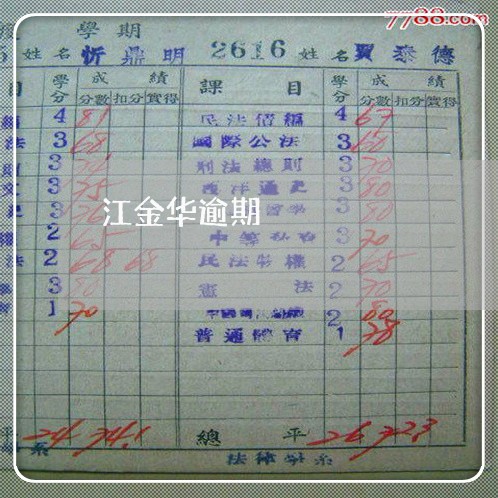 7788.com
學期
姓名 忻鼎明 2616 姓名 賈泰德
目 學分 成績 課目 學分 成績
分數 扣分 實得 分數 扣分 實得
4 81 民法債編 4 67
法 3 68 國際公法 3 60
3 刑法總則 3 70
3 75 西洋通史 3 80
3 3 80
江金华逾期
2 65 3 70
法 2 68 68 民法物權 2 65
3 80 憲法 2 70
1 70 2 80
普通體育 1 78
平 24 74.1 總平 26 72.3
系 法律學系